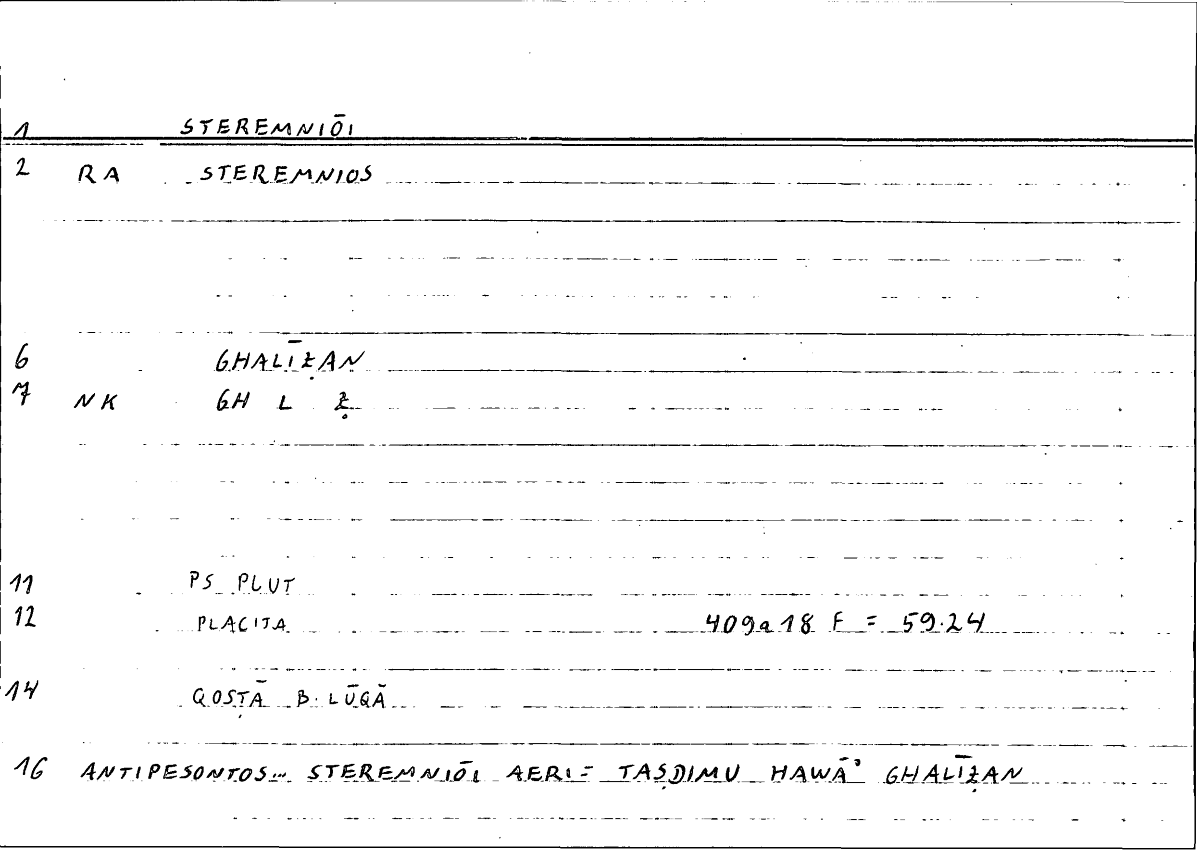 1 STEREMNIŌI
2 RA STEREMNIOS
6 GHALĪẒAN
7 NK GH L Ẓ
11 PS PLUT
12 PLACITA 409a18 F = 59.24
14 QOSṬĀ B. LŪQĀ
16 ANTIPESONTOS... STEREMNIŌI AERI = TAṢDIMU HAWĀʾ GHALĪẒAN